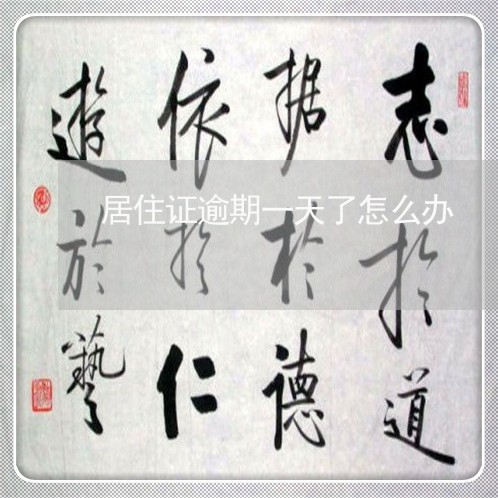 志於道
据於德
依於仁
遊於藝
居住证逾期一天了怎么办